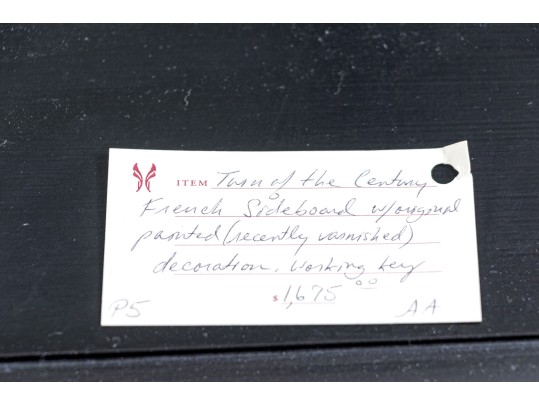 ITEM Turn of the Century
French Sideboard w/original
painted (recently varnished)
decoration. Working key
$1,675 00
P5 AA